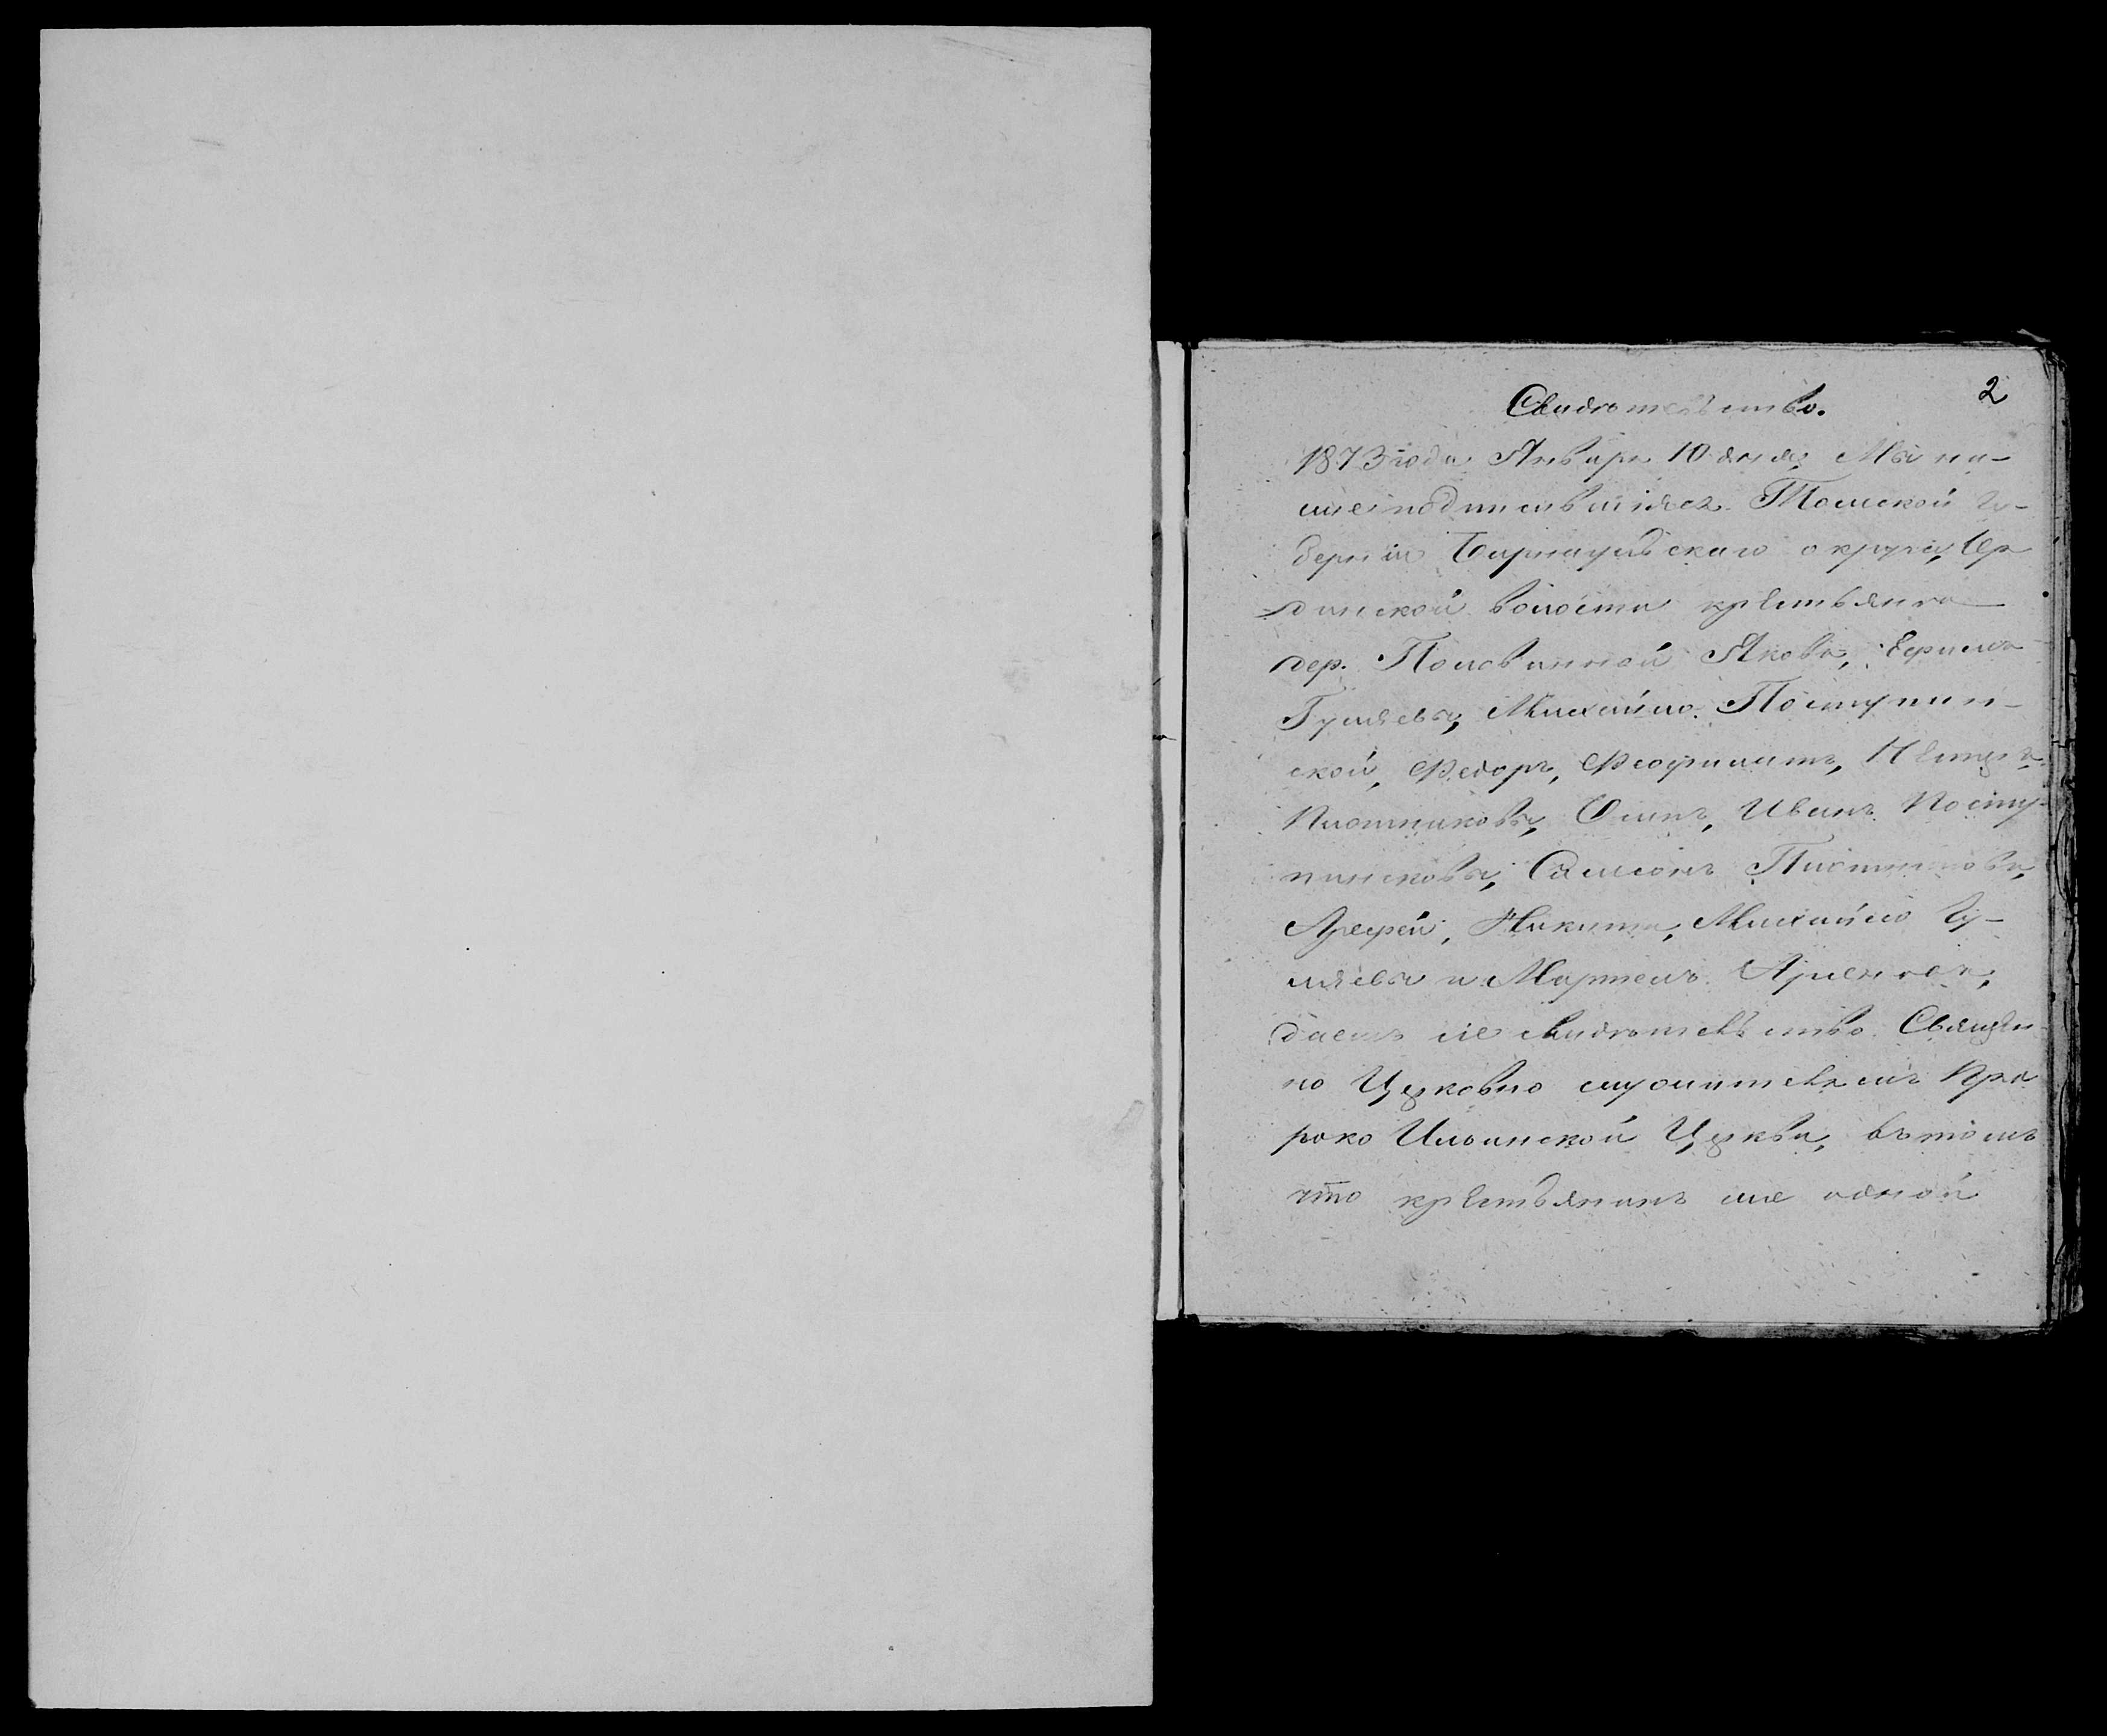 2
Свидѣтельство.
1873 года Января 10 дня, Мы ни-
жеподписавшіяся Томской Гу-
берніи Барнаульскаго округа, Ор
динской волости крестьяна
дер. Половинной Яковъ, Ефимъ
Гуляевы, Михайло Поступин-
ской, Федоръ, Феофилатъ, Петръ
Плотниковы, Осипъ, Иванъ Посту-
пинсковы, Самсонъ Плотниковъ,
Арефей, Никита, Михайло Гу-
ляевы и
даемъ сіе свидѣтельство Священ
но Церковно служителямъ Про
роко Ильинской Церкви, въ томъ
что крестьянинъ